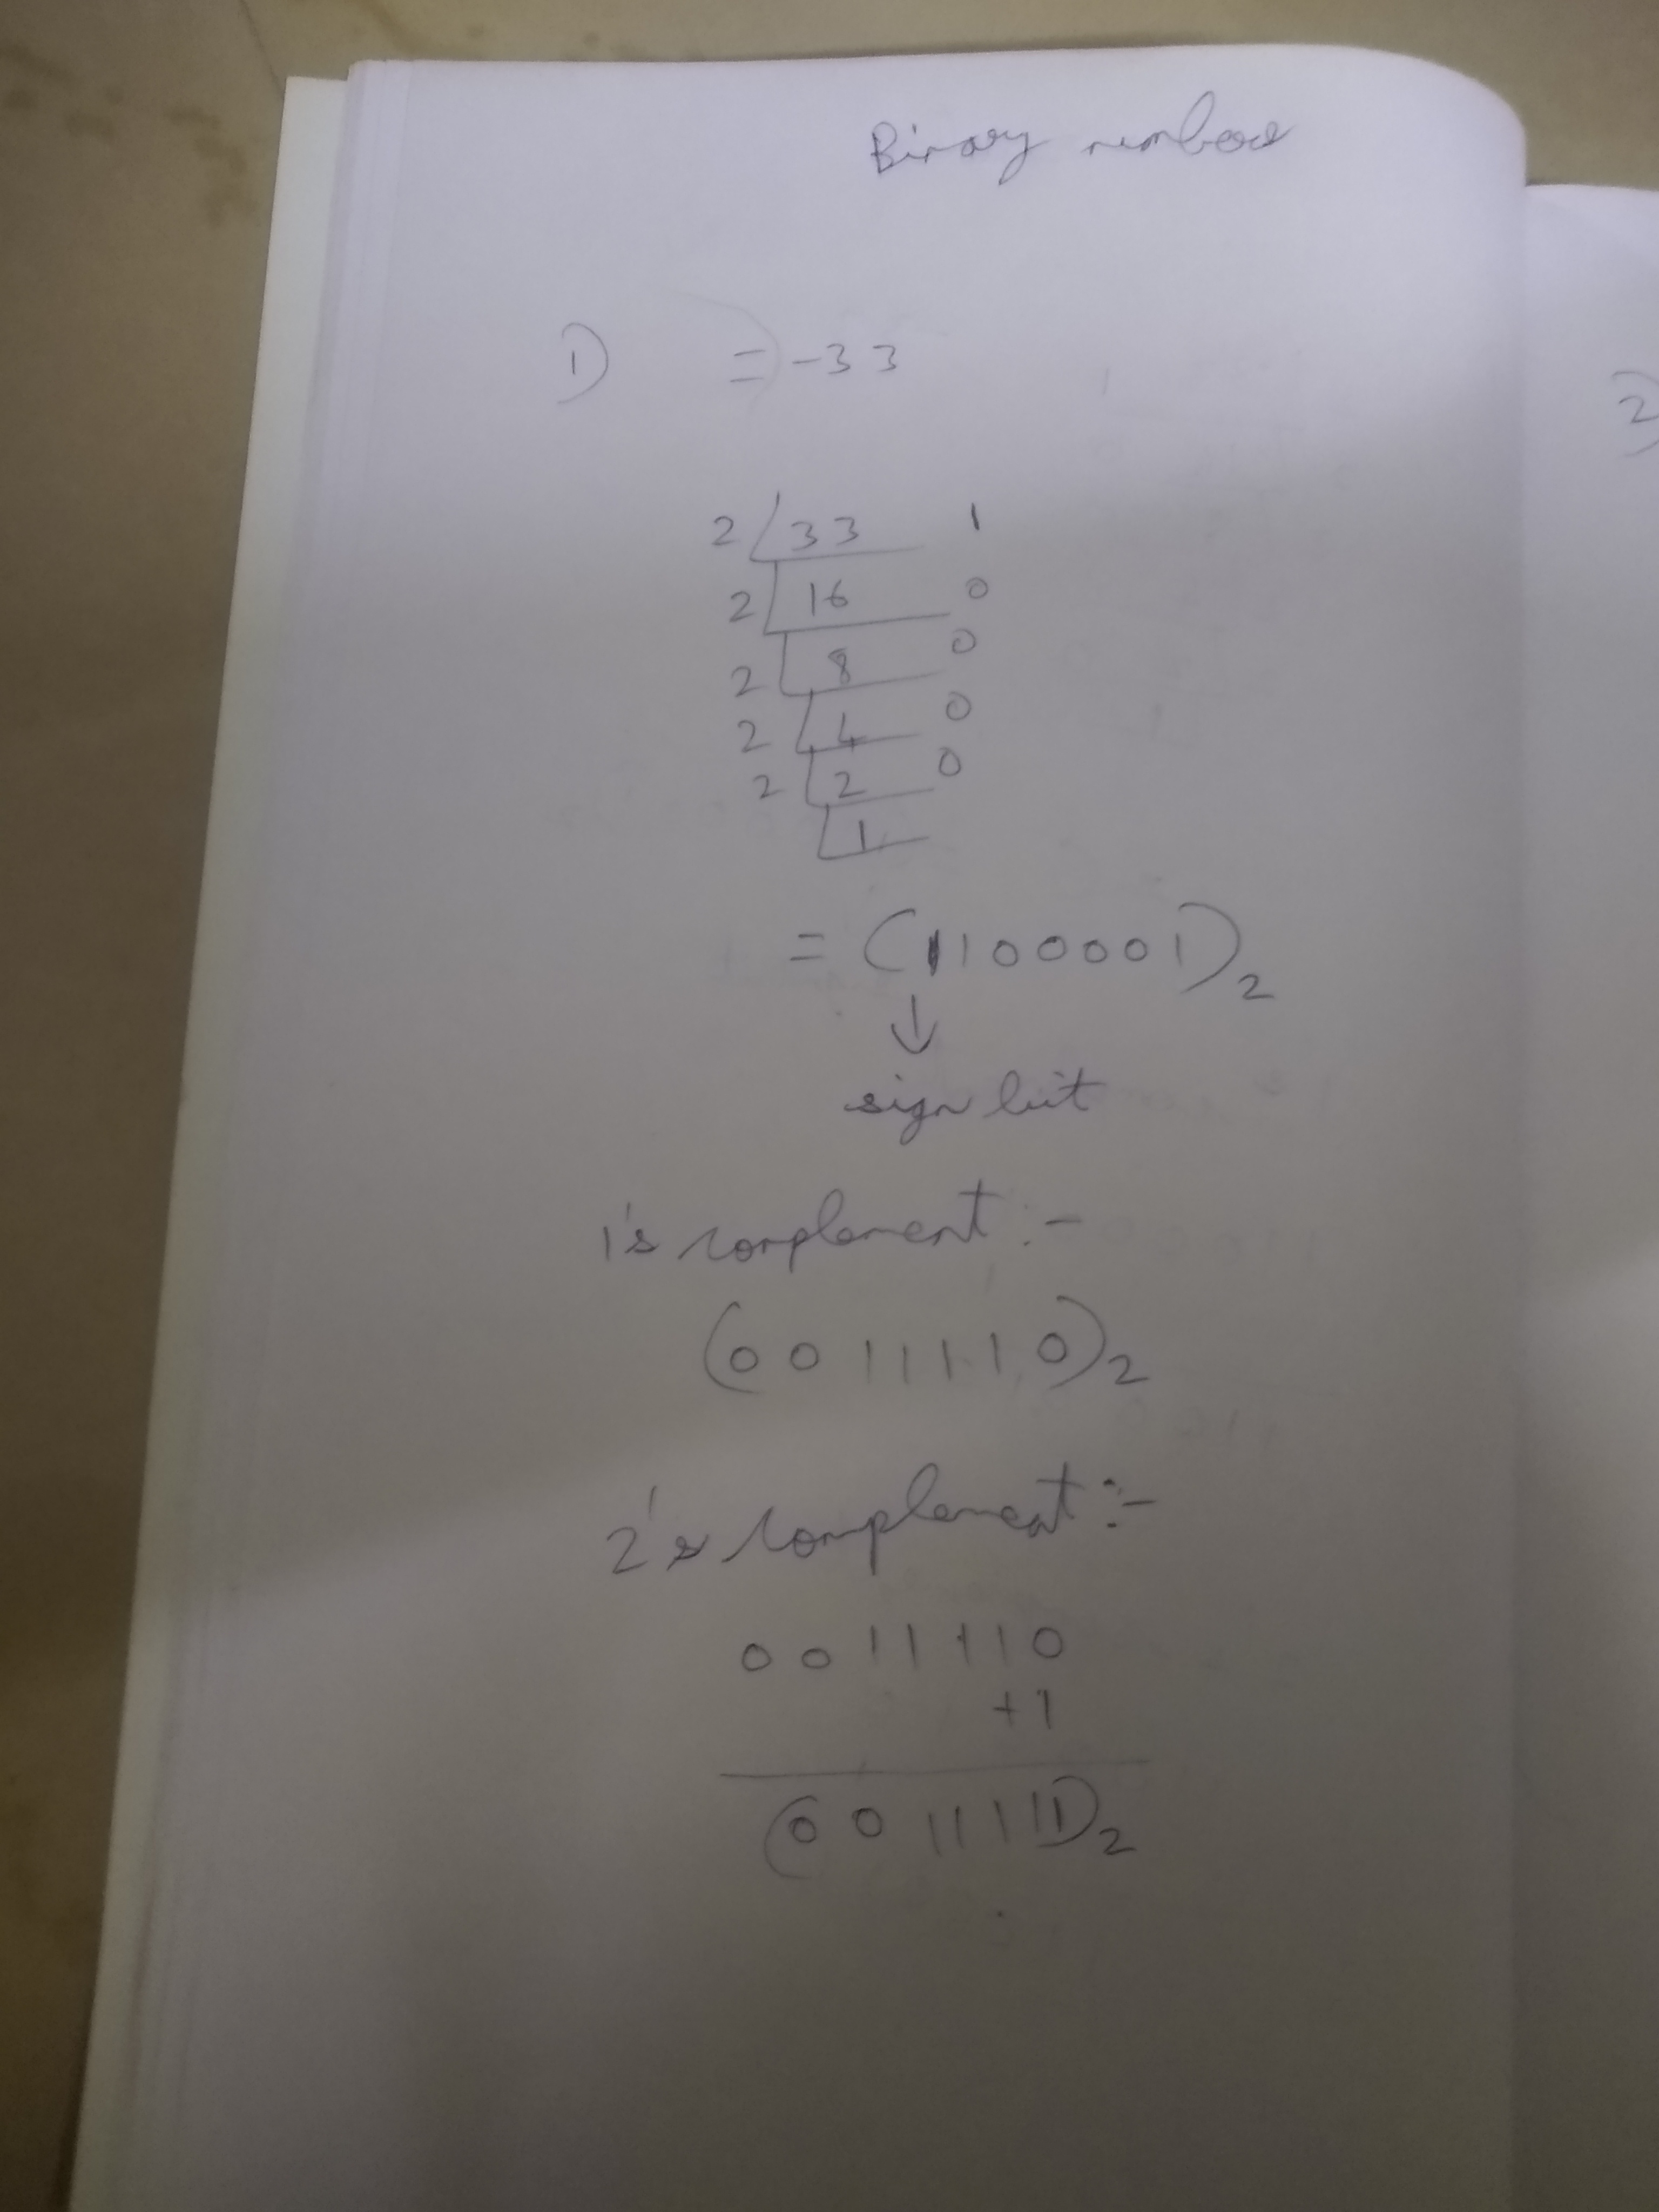 Binary numbers
1) = -33
2)
2 33 1
2 16 0
2 8 0
2 4 0
2 2 0
1
= (1100001)2
↓
sign bit
1's complement :-
(0011110)2
2's complement :-
0011110
+1
(0011111)2